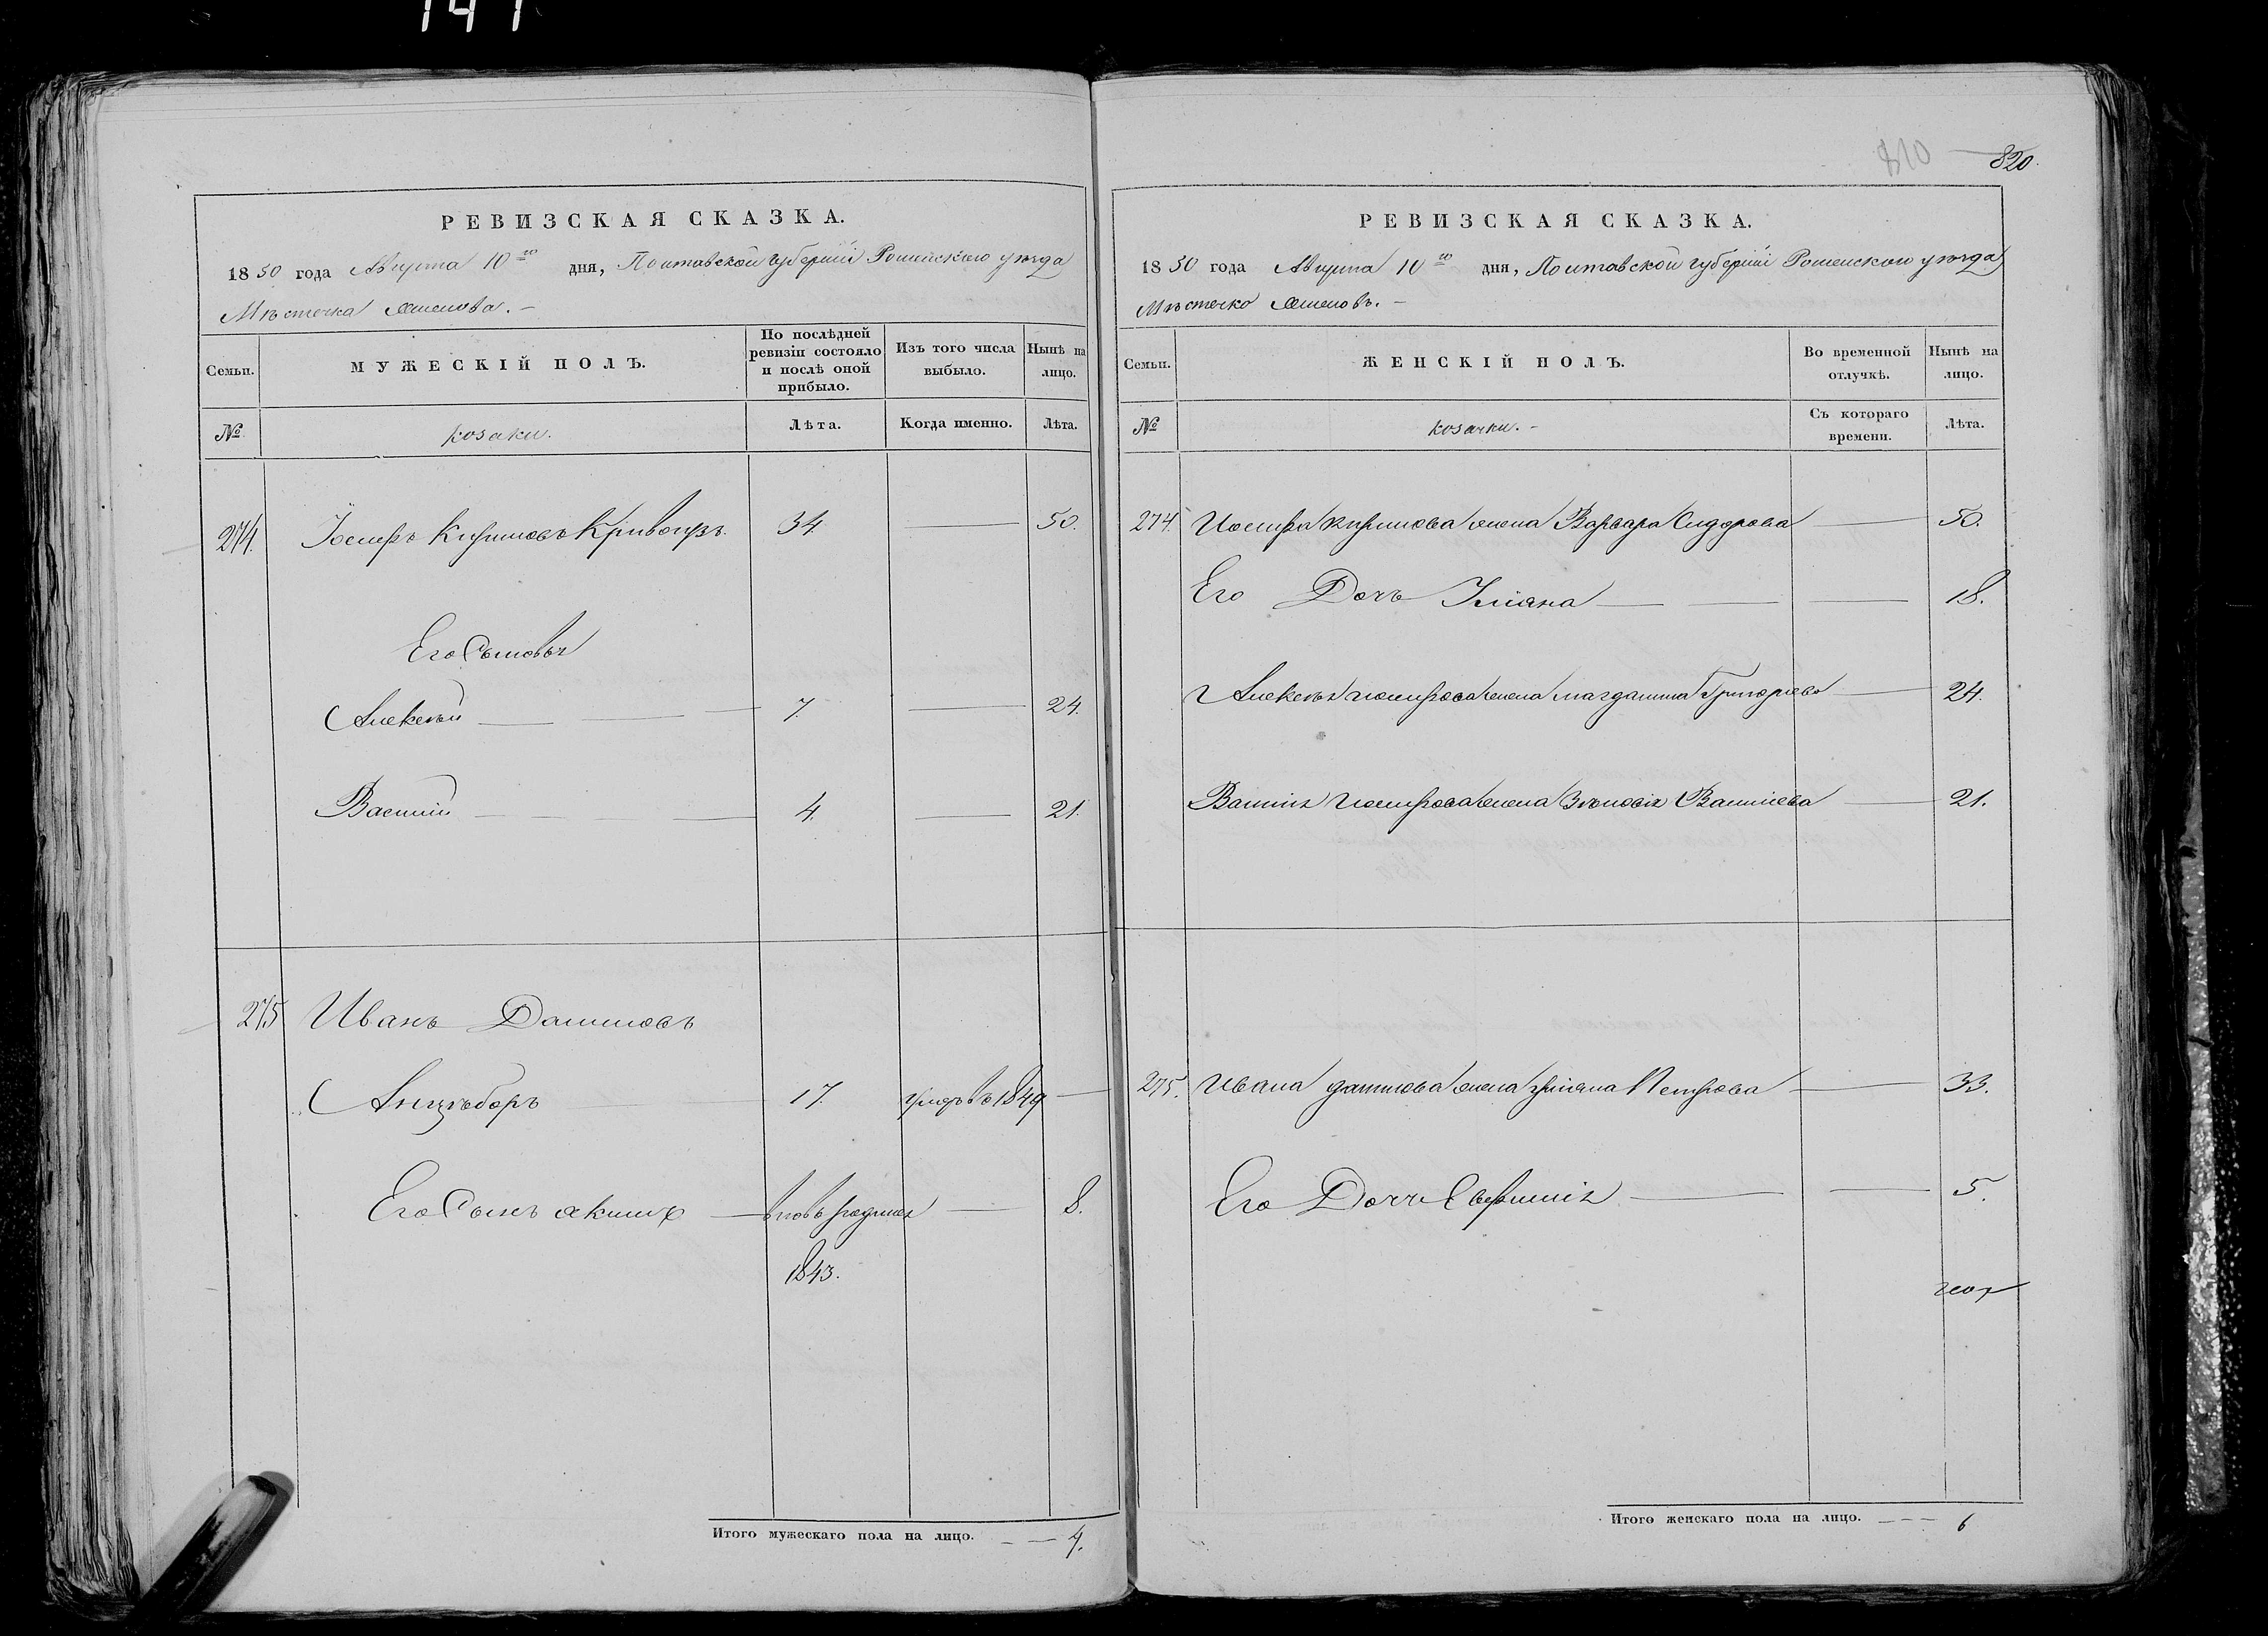 141
РЕВИЗСКАЯ СКАЗКА.
1850 года Августа 10го дня, Полтавской губернии Роменского уезда
Мѣстечка Смелова. –
Семьи.
МУЖЕСКІЙ ПОЛЪ.
По послѣдней ревизіи состояло и послѣ оной прибыло.
Изъ того числа выбыло.
Нынѣ на лицо.
№
козаки.
Лѣта.
Когда именно.
Лѣта.
274. Іосифъ Кириловъ Кривогузъ. 34. — 50.
Его Сыновья
Алексѣй — 7. — 24.
Василій — 4. — 21.
275 Иванъ Даниловъ
17. умеръ въ 1849 —
Его Сынъ Якимъ — вновь родился — 8.
1843.
Итого мужескаго пола на лицо. — — 4.
810 — 820.
РЕВИЗСКАЯ СКАЗКА.
1850 года Августа 10го дня, Полтавской губернии Роменского уезда
Мѣстечко Смеловъ. –
Семьи.
ЖЕНСКІЙ ПОЛЪ.
Во временной отлучкѣ.
Нынѣ на лицо.
№
козачки. –
Съ котораго времени.
Лѣта.
274. Иосифа Кирилова жена Варвара Сидорова — 50.
Его Дочь Улiяна — 18.
Алексѣя Иосифова жена Магдалина Григорiева — 24.
Василія Иосифова жена Зѣновія Василіева — 21.
275. Ивана Данилова жена Улiяна Петрова — 33.
Его Дочь Евфимія — 5.
Итого женскаго пола на лицо. — — — 6